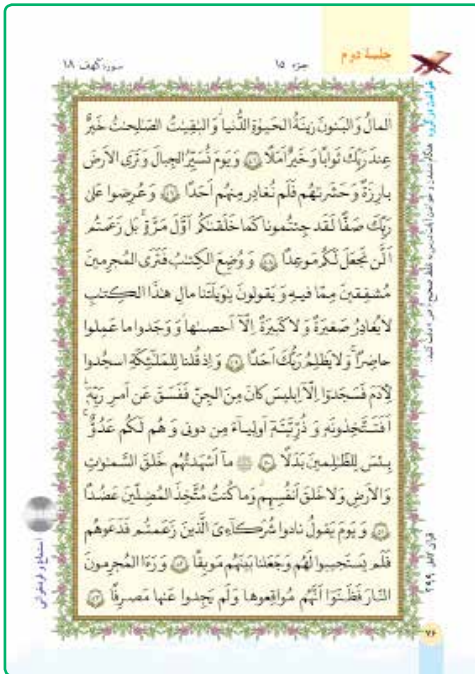 جلسهٔ دوم
جزء ۱۵
سورهٔ کهف ۱۸
المالُ وَ البَنونَ زینَةُ الحَیوٰةِ الدُّنیا وَ البٰقِیٰتُ الصّٰلِحٰتُ خَیرٌ
عِندَ رَبِّکَ ثَوابًا وَ خَیرٌ اَمَلًا ۴۶ وَ یَومَ نُسَیِّرُ الجِبالَ وَ تَرَی الاَرضَ
بارِزَةً وَ حَشَرنٰهُم فَلَم نُغادِر مِنهُم اَحَدًا ۴۷ وَ عُرِضوا عَلیٰ
رَبِّکَ صَفًّا لَقَد جِئتُمونا کَما خَلَقنٰکُم اَوَّلَ مَرَّةٍ بَل زَعَمتُم
اَلَّن نَجعَلَ لَکُم مَوعِدًا ۴۸ وَ وُضِعَ الکِتٰبُ فَتَرَی المُجرِمینَ
مُشفِقینَ مِمّا فیهِ وَ یَقولونَ یٰوَیلَتَنا مالِ هٰذَا الکِتٰبِ
لا یُغادِرُ صَغیرَةً وَ لا کَبیرَةً اِلّا اَحصٰىها وَ وَجَدوا ما عَمِلوا
حاضِرًا وَ لا یَظلِمُ رَبُّکَ اَحَدًا ۴۹ وَ اِذ قُلنا لِلمَلٰئِکَةِ اسجُدوا
لِاٰدَمَ فَسَجَدوا اِلّا اِبلیسَ کانَ مِنَ الجِنِّ فَفَسَقَ عَن اَمرِ رَبِّه
اَفَتَتَّخِذونَه وَ ذُرِّیَّتَه اَولِیاءَ مِن دونی وَ هُم لَکُم عَدُوٌّ
بِئسَ لِلظّٰلِمینَ بَدَلًا ۵۰ ما اَشهَدتُهُم خَلقَ السَّمٰوٰتِ
وَ الاَرضِ وَ لا خَلقَ اَنفُسِهِم وَ ما کُنتُ مُتَّخِذَ المُضِلّینَ عَضُدًا
۵۱ وَ یَومَ یَقولُ نادوا شُرَکاءِیَ الَّذینَ زَعَمتُم فَدَعَوهُم
فَلَم یَستَجیبوا لَهُم وَ جَعَلنا بَینَهُم مَوبِقًا ۵۲ وَ رَءَا المُجرِمونَ
النّارَ فَظَنّوا اَنَّهُم مُواقِعوها وَ لَم یَجِدوا عَنها مَصرِفًا ۵۳
استماع و
قرآن کامل ۲۹۹
۷۶